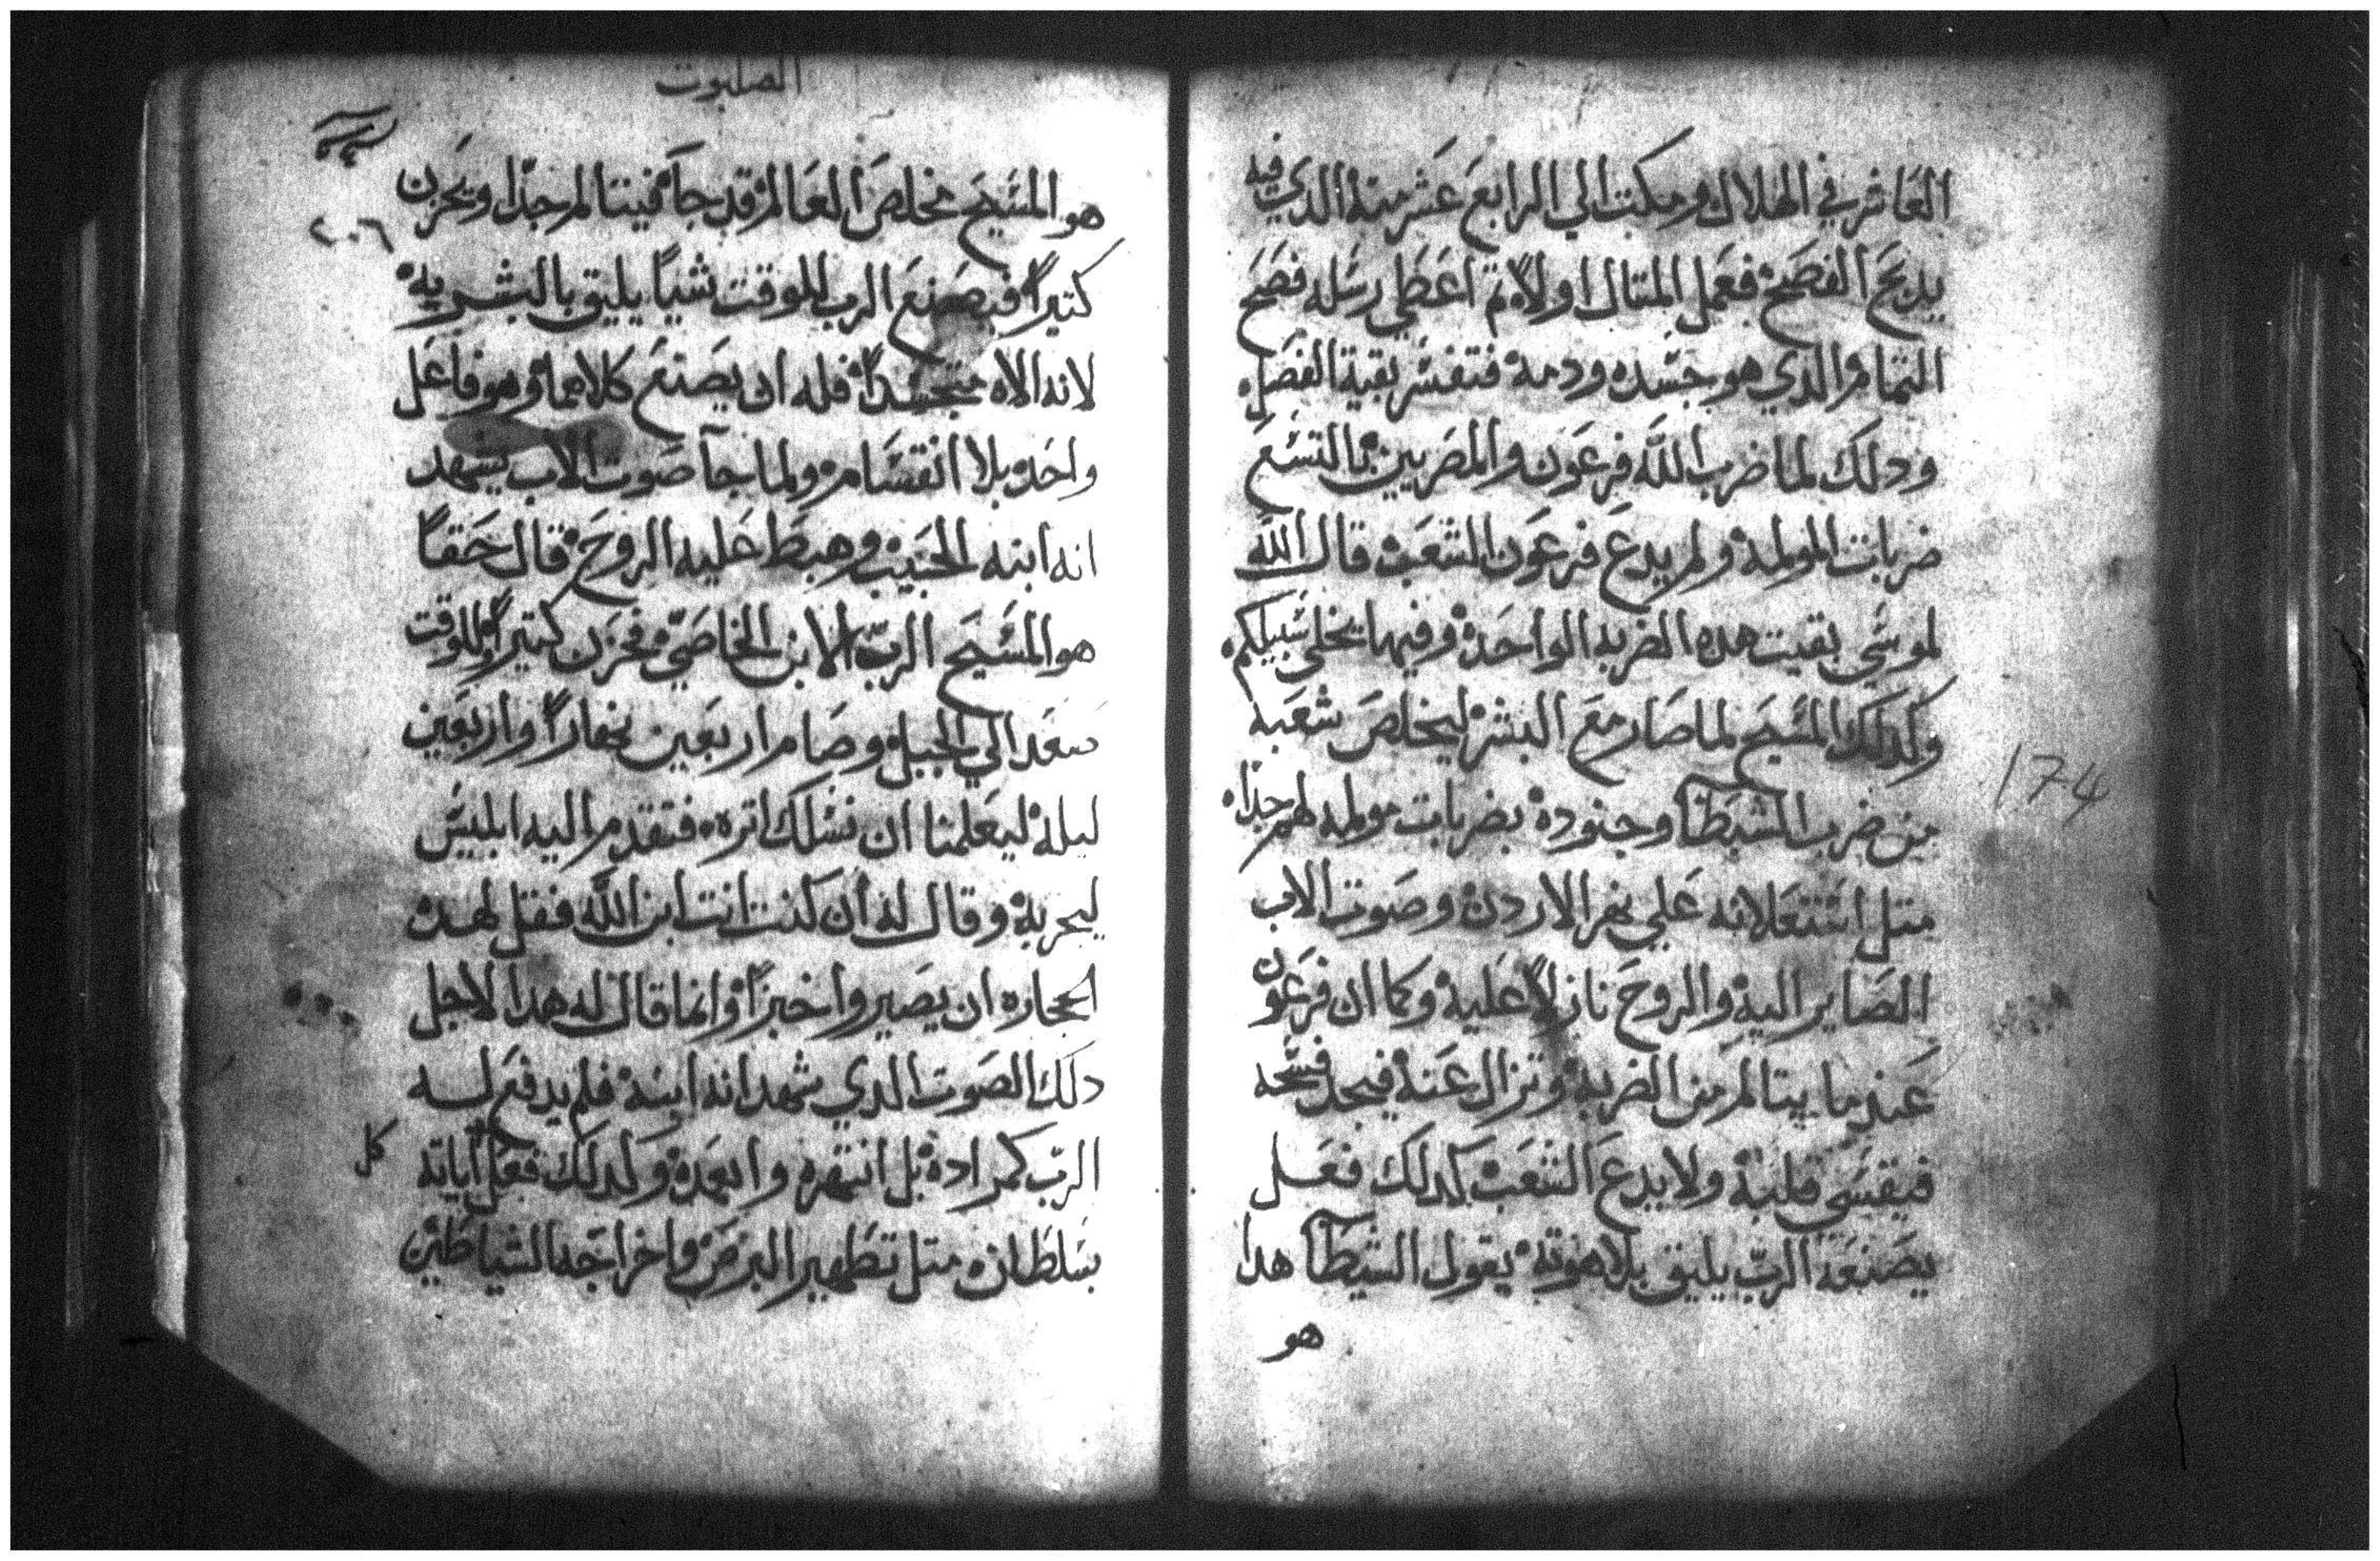 العاشر في الهلال ومكث الي الرابع عشر منه الدي فيه
يدبح الفصح فعمل المتال اولاً تم اعطي رسله فصح
التمام والدي هو جسده ودمه فتفسر بقية الفصل
ودلك لما ضرب الله فرعون والمصريين بالتسع
ضربات المولمه ولم يدع فرعون الشعب قال الله
لموسي بقيت هده الضربه الواحده وفيها يخلي سبيلكم
وكدلك المسيح لما صار مع البشر ليخلص شعبه
من ضرب الشيطان وجنوده بضربات مولمه لهم جداً
متل اشتعلانه علي نهر الاردن وصوت الاب
الصاير اليه والروح نازلاً عليه وكما ان فرعون
عندما يتالم من الضربه وتزال عنه فيجد فسحه
فيقسي قلبه ولا يدع الشعب كدلك فعل
يصنعه الرب يليق بلاهوته يقول الشيطان هدا
هو
174
الصلبوت
٢٠٦
هو المسيح مخلص العالم قد جآ فيتالم جداً ويحزن
كتيراً فيصنع الرب للوقت شياً يليق بالبشريه
لانه الاه متجسداً فله ان يصنع كلاهما وهو فاعل
واحد بلا انقسام ولما جآ صوت الاب يشهد
انه ابنه الحبيب وهبط عليه الروح قال حقاً
هو المسيح الرب الابن الخاصي فحزن كتيراً وللوقت
صعد الي الجبل وصام اربعين نهاراً واربعين
ليله ليعلمنا ان نسلك اتره فتقدم اليه ابليس
ليجربه وقال له ان كنت انت ابن الله فقل لهده
الحجاره ان يصيروا خبزاً وانما قال له هدا لاجل
دلك الصوت الدي شهد انه ابنه فلم يدفع له
الرب كمراده بل انتهره وابعده وكدلك فعل اياته
كل
بسلطان متل تطهير البرص واخراجه الشياطين